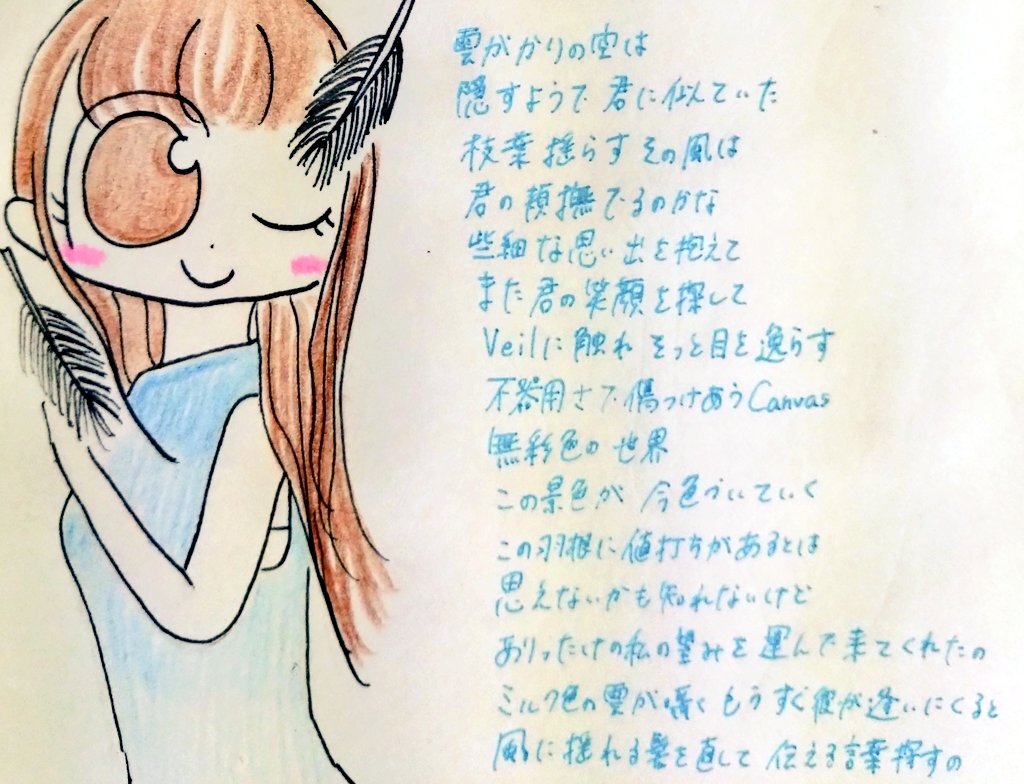 雲がかりの空は
隠すようで 君に似ていた
枝葉揺らす その風は
君の頬撫でるのかな
些細な思い出を抱えて
また君の笑顔を探して
Veilに触れ そっと目を逸らす
不器用さで傷つけあうCanvas
無彩色の世界
この景色が 今色づいていく
この羽根に値打ちがあるとは
思えないかも知れないけど
ありったけの私の望みを運んで来てくれたの
ミルク色の雲が囁く もうすぐ彼が逢いにくると
風に揺れる髪を直して 伝える言葉探すの